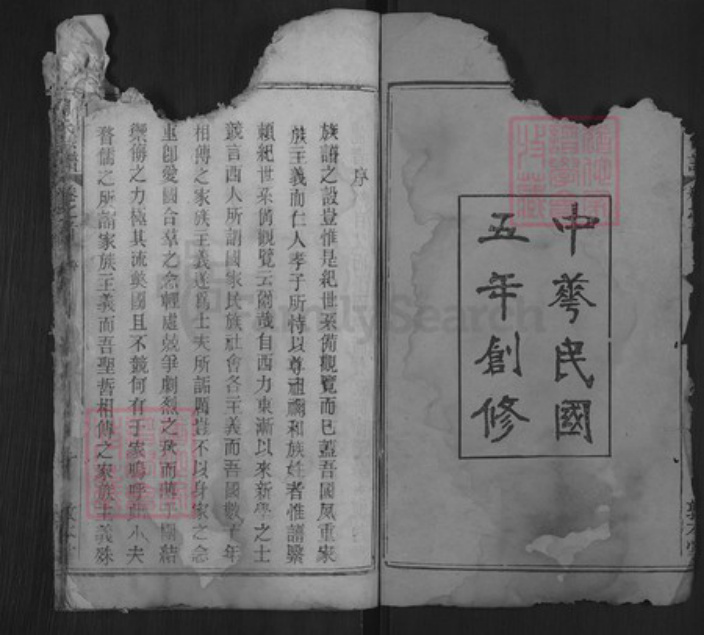 中華民國
五年創修
序
族譜之設豈惟是紀世系備觀覽而已蓋吾國風重家
族主義而仁人孝子所恃以尊祖禰和族姓者惟譜繄
賴紀世系備觀覽云爾哉自西力東漸以來新學之士
競言西人所謂國家民族社會各主義而吾國數千年
相傳之家族主義遂爲士夫所詬厲豈不以身家之念
重卽愛國合羣之念輕處競爭劇烈之秋而薄于團結
禦侮之力極其流獘國且不競何有于家嗚呼此小夫
瞀儒之所謂家族主義而吾聖哲相傳之家族主義殊
FamilySearch